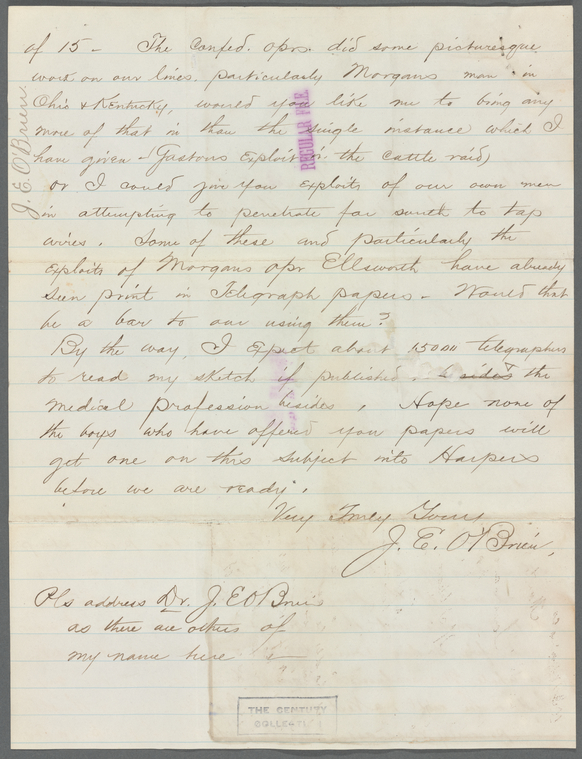 of 15 - The Confed. oprs. did some picturesque
work on our lines. particularly Morgans man in
Ohio & Kentucky, would you like me to bring any
more of that in than the single instance which I
have given - (Gastons Exploit in the cattle raid)
or I could give you exploits of our own men
in attempting to penetrate far south to tap
wires. Some of these and particularly the
exploits of Morgans opr Ellsworth have already
seen print in Telegraph papers - Would that
be a bar to our using them?
By the way, I expect about 15000 telegraphers
to read my sketch if published, - sides the
medical profession besides. Hope none of
the boys who have offered you papers will
get one on this subject into Harpers
before we are ready.
Very Truly Yours
J. E. O'Brien,
Pls address Dr. J. E O'Brien
as there are others of
my name here -
J. E. O'Brien
REGULAR FILE
THE CENTURY
COLLECTION